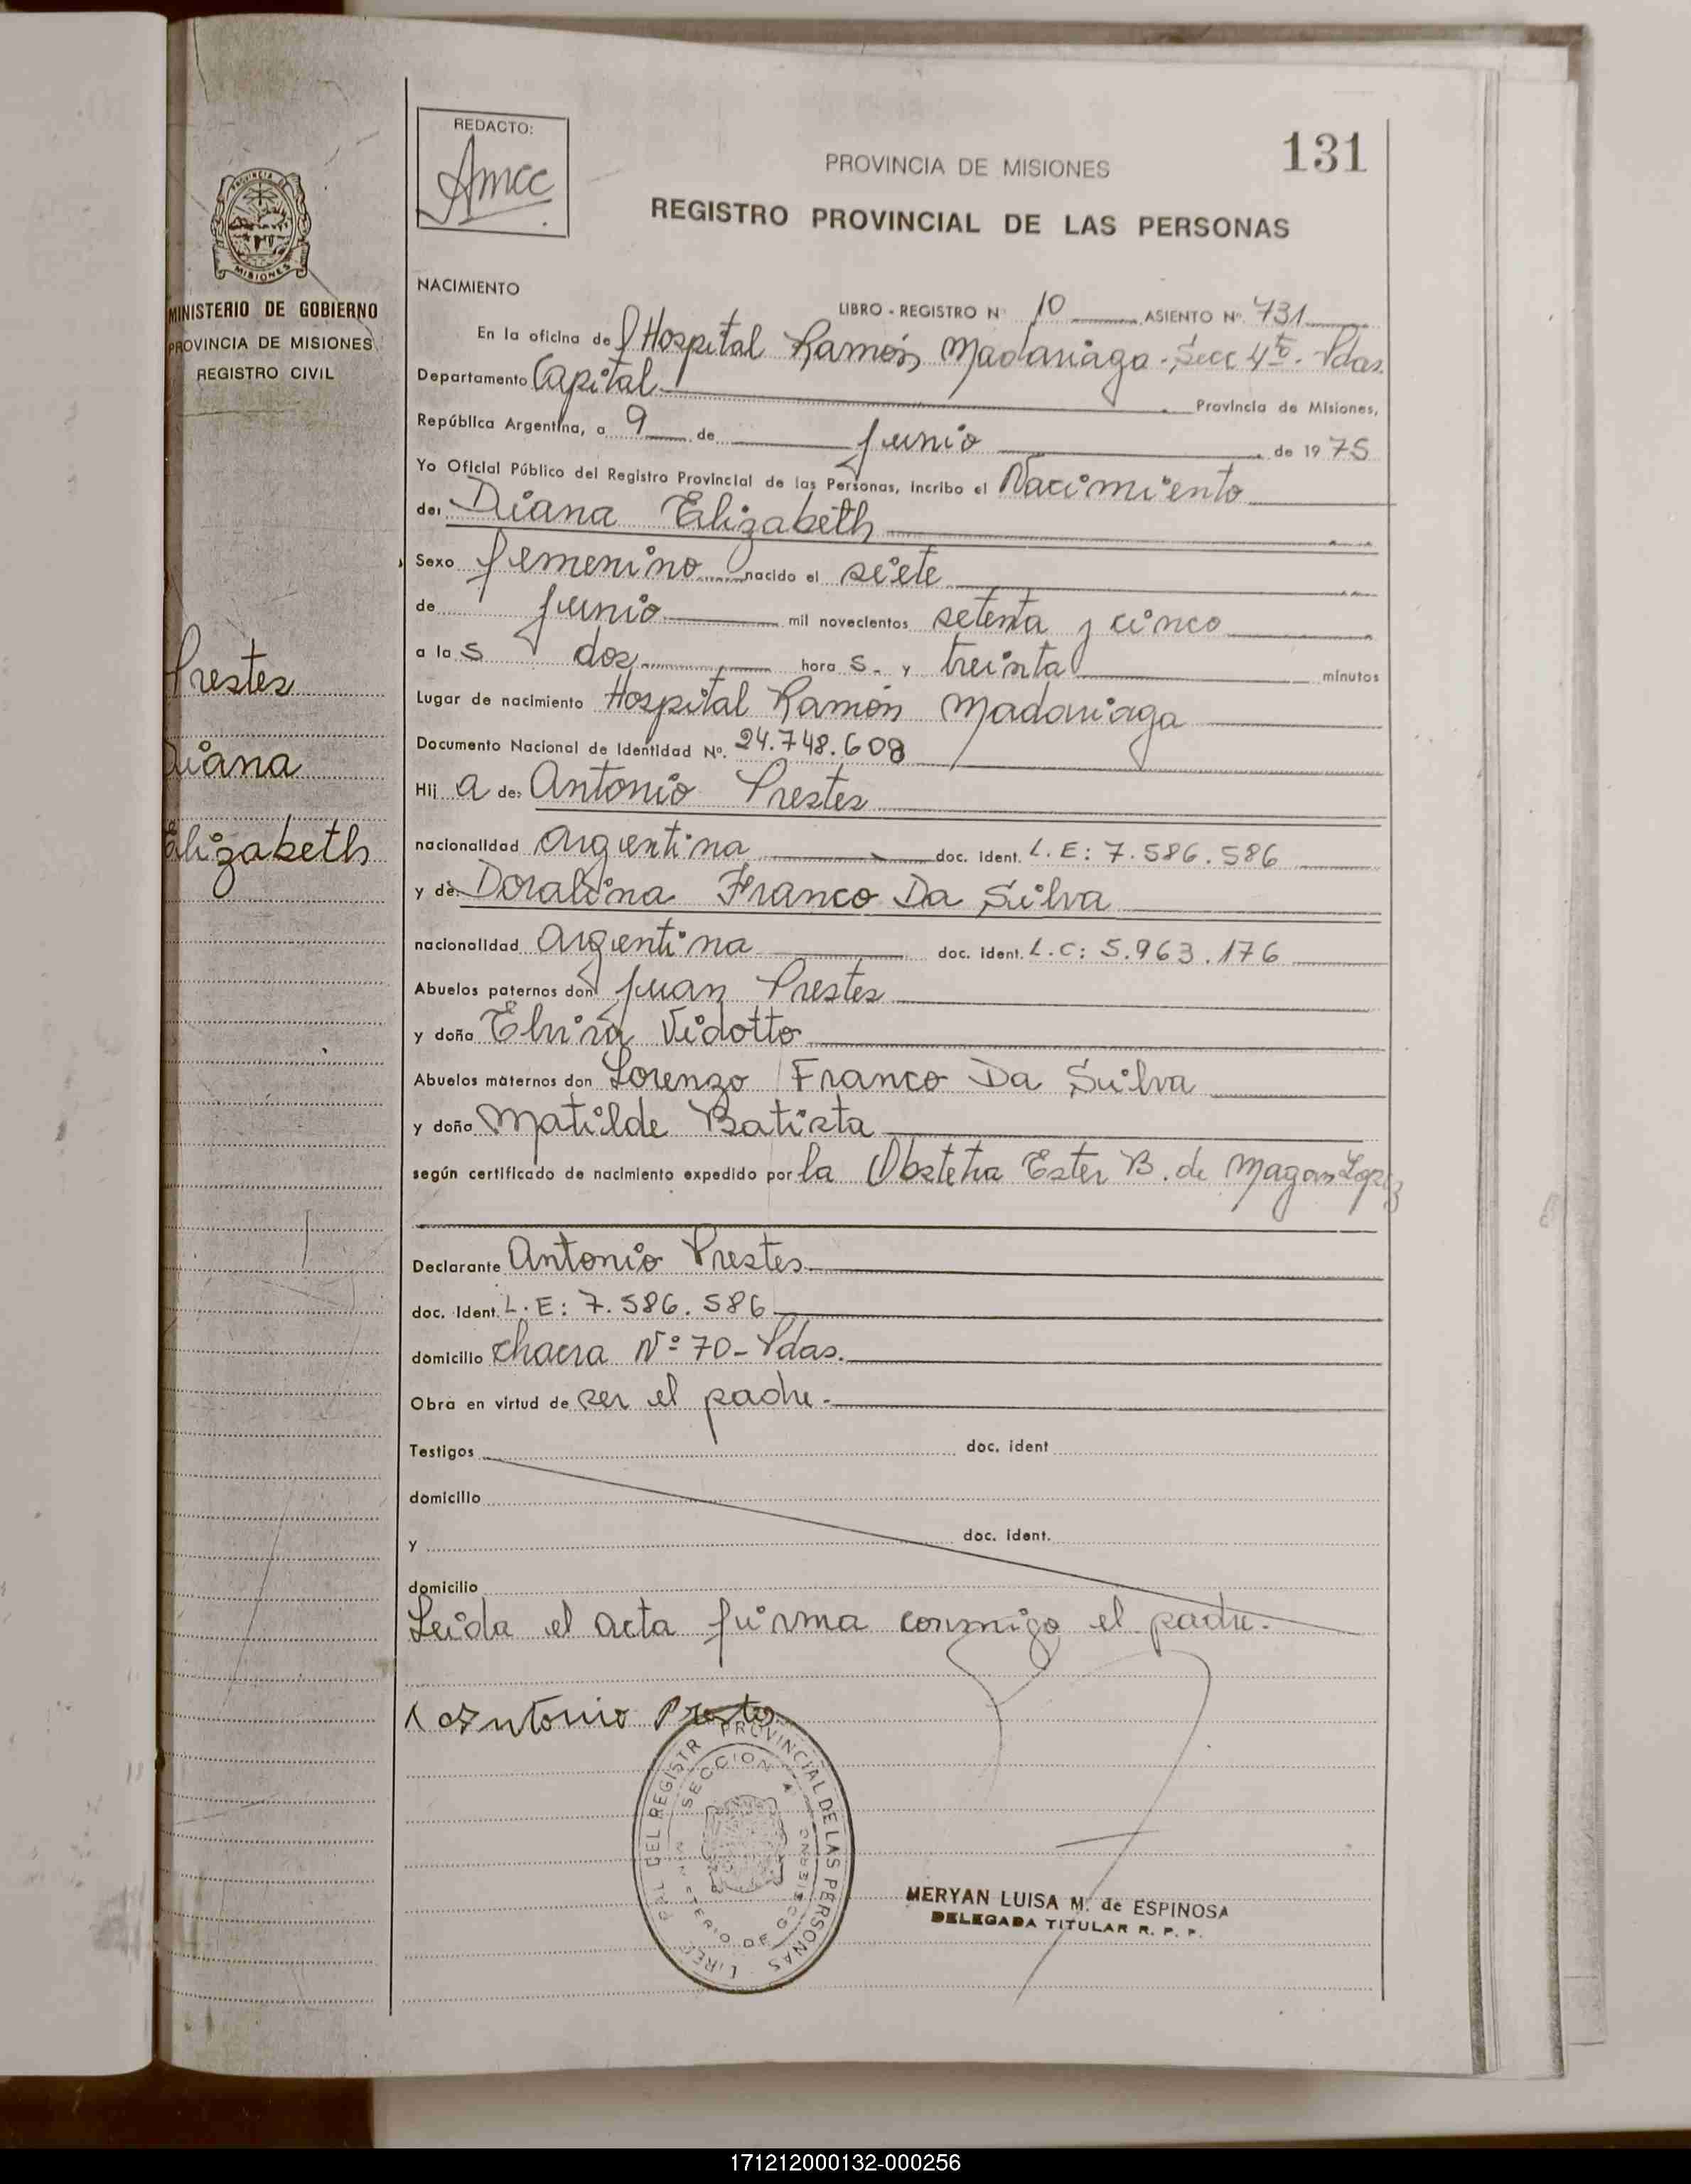 REDACTO:
Amcc
131
PROVINCIA DE MISIONES
REGISTRO PROVINCIAL DE LAS PERSONAS
PROVINCIA DE
MISIONES
MINISTERIO DE GOBIERNO
PROVINCIA DE MISIONES
REGISTRO CIVIL
Prestes
Diana
Elizabeth
NACIMIENTO
LIBRO - REGISTRO Nº 10 ASIENTO Nº. 731
En la oficina del Hospital Ramón Madariaga - Secc 4ta. Pdas.
Departamento Capital Provincia de Misiones,
República Argentina, a 9 de junio de 1975
Yo Oficial Público del Registro Provincial de las Personas, incribo el Nacimiento
de: Diana Elizabeth
Sexo femenino nacido el siete
de junio mil novecientos setenta y cinco
a las dos horas. y treinta minutos
Lugar de nacimiento Hospital Ramón Madariaga
Documento Nacional de Identidad Nº. 24.748.608
Hija de: Antonio Prestes
nacionalidad argentina doc. ident. L.E: 7.586.586
y de: Doralina Franco Da Silva
nacionalidad argentina doc. ident. L.C: 5.963.176
Abuelos paternos don Juan Prestes
y doña Elvira Vidotto
Abuelos maternos don Lorenzo Franco Da Silva
y doña Matilde Batista
según certificado de nacimiento expedido por la Obstetra Ester B. de Lopez
Declarante Antonio Prestes
doc. Ident. L.E: 7.586.586
domicilio chacra Nº 70 - Pdas.
Obra en virtud de ser el padre.
Testigos doc. ident
domicilio
y doc. ident.
domicilio
Leida el acta firma conmigo el padre.
Antonio Prestes
PROVINCIAL DE LAS PERSONAS
DEL REGISTR
SECCION 4
DE GOBIERNO
MERYAN LUISA M. de ESPINOSA
DELEGADA TITULAR R. P. P.
171212000132-000256